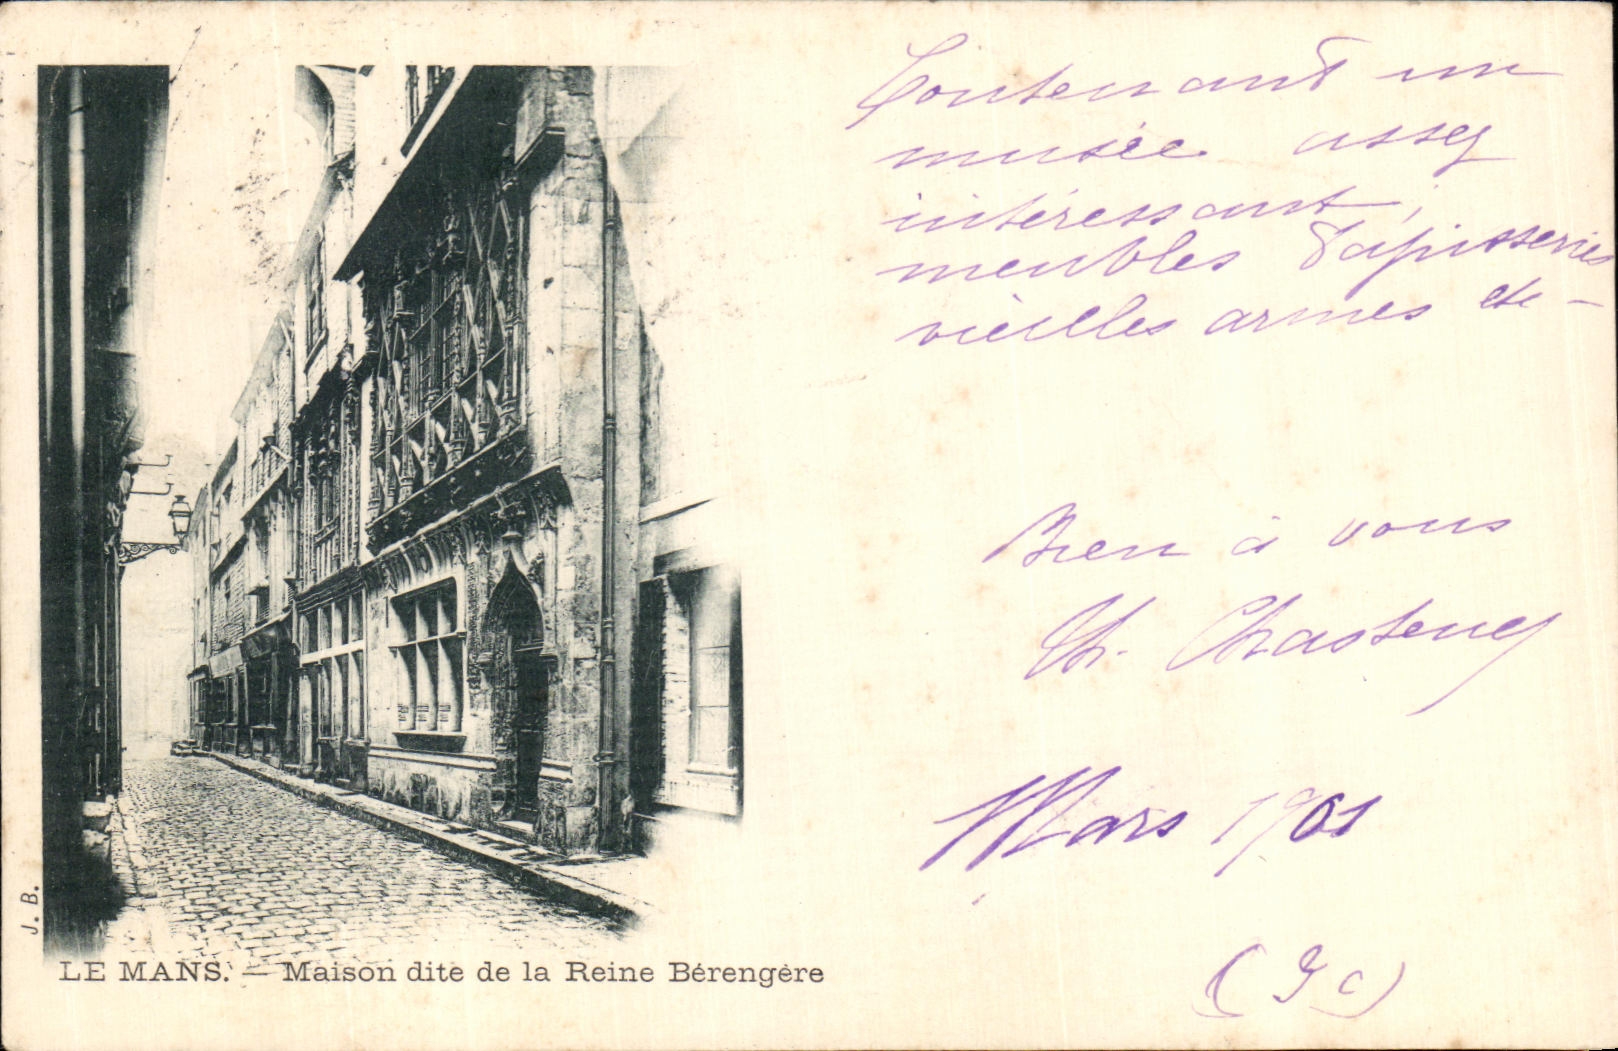 Contenant un
musée assez
intéressant,
meubles tapisseries
vieilles armes etc -
Bien à vous
Th. Chasteney
Mars 1901
J. B.
LE MANS. — Maison dite de la Reine Bérengère